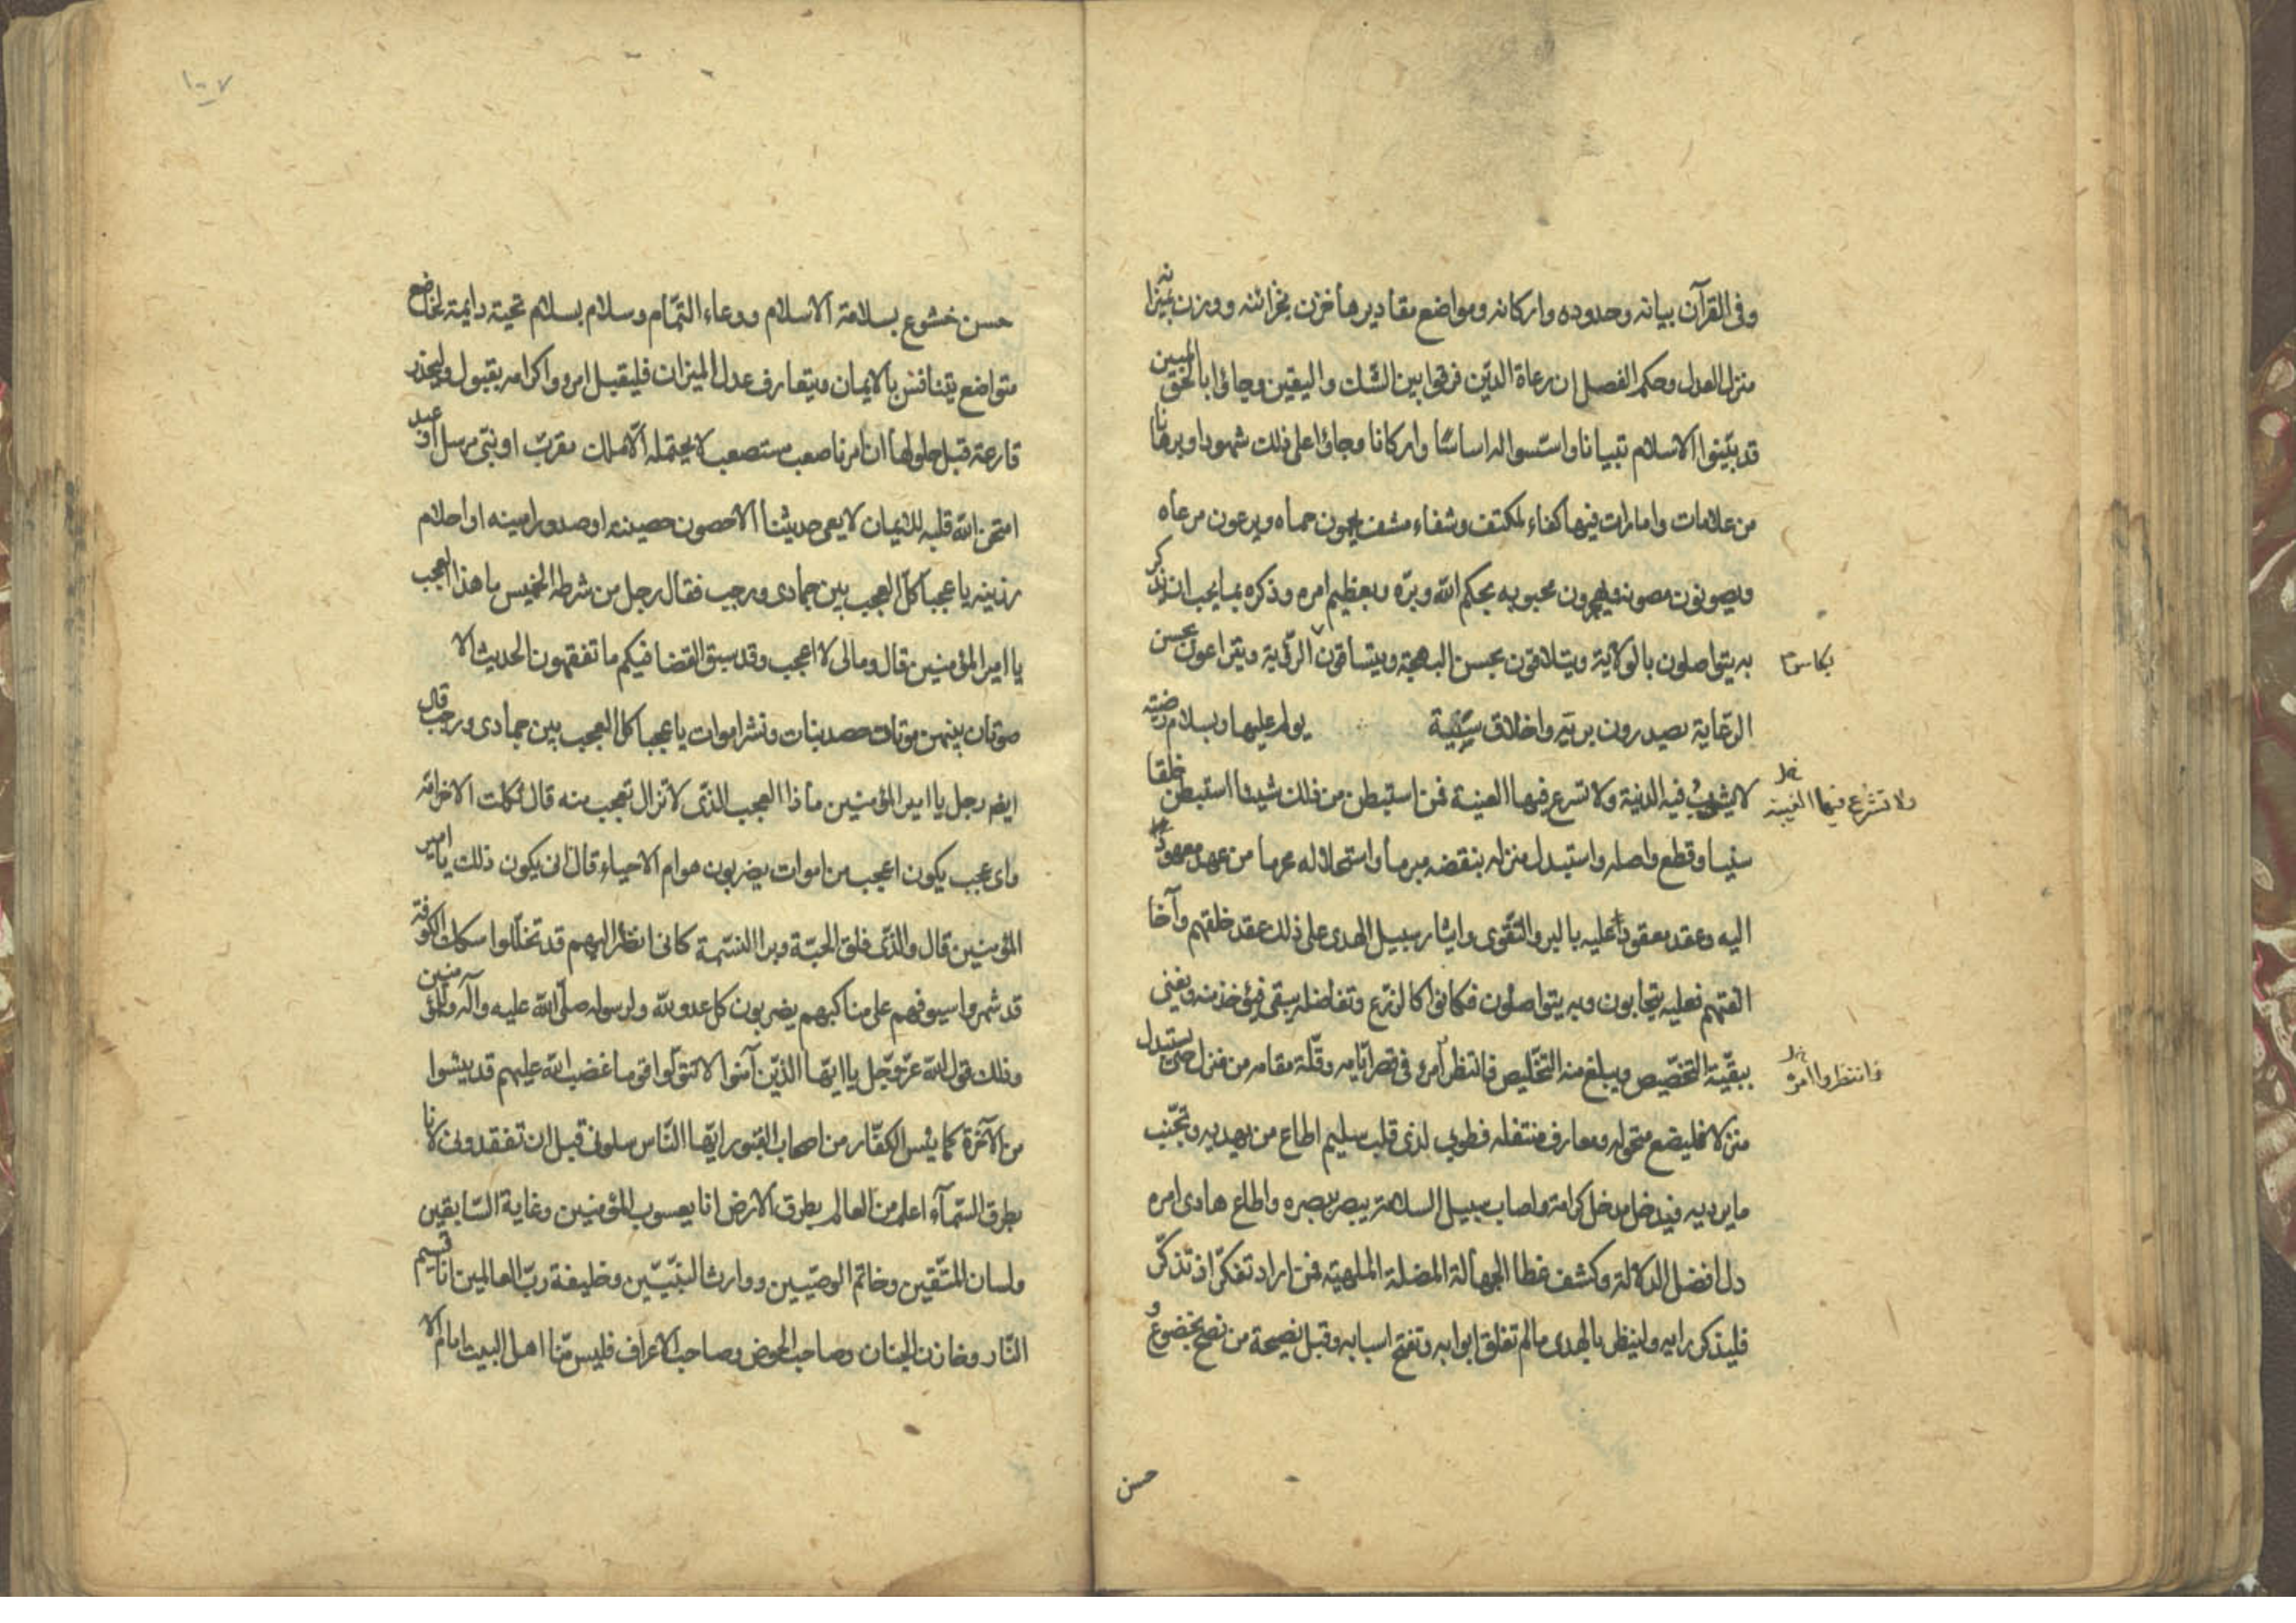 وفى القرآن بيانه وحدوده واركانه ومواضع مقاديرها خزن بخزائنه ووزن بميزانه
منزل العدل وحكم الفصل ان رعاة الدّين فرقوا بين الشّك واليقين وجاؤا بالحق المبين
قد بيّنوا الاسلام تبيانا واسّسوا له اساسًا واركانا وجاؤا على ذلك شهودا وبرهانا
من علامات وامارات فيها كفاء لمكتف وشفاء مشف يحمون حماه ويرعون مرعاه
ويصونون مصونه ويهجرون محبوبه بحكم الله وبرّه وبعظيم امره وذكره بما يجب ان يذكر
به يتواصلون بالولاية ويتلاقون بحسن البهجة ويتساقون الرّوية ويتراعون بحسن
بكاس
الرّعاية بصدرون بريّه واخلاق سنيّة يوله عليها وبسلام رضيّة
لا يشرب فيه الدنية ولا تسرع فيها الغيبة فمن استبطن من ذلك شيئا استبطن خلقا
ولا تشرع فيها الغيبة خل
سنيا وقطع واصله واستبدل منزله بنقضه مبرما واستحلاله محرما من عهد معهود
اليه وعقد معقود عليه بالبر والتّقوى وايثار سبيل الهدى على ذلك عقد خلقهم وآخا
الفتهم فعليه يتحابون وبه يتواصلون فكانوا كالزرع وتفاضله يبقى فيؤخذ منه ويفنى
ببقيّة التخصّيص ويبلغ منه التخّليص فانتظر امره فى قصر ايّامه وقلّة مقامه من منزل حتى يستبدل
فانتظروا امره خل
منزلا فليضع متحوله ومعارف منتقله فطوبى لذى قلب سليم اطاع من يهديه وتجنّب
ما يرديه فيدخل مدخل كرامة واصاب سبيل السلامة يبصر ببصره واطاع هادى امره
دل افضل الدلالة وكشف غطا الجهالة المضلة الملهية فمن اراد تفكرّا او تذكّر
فليذكر رايه ولينظر بالهدى مالم تغلق ابوابه وتفتح اسبابه وقبل نصيحة من نصح بخضوع و
حسن
١٠٧
حسن خشوع بسلامة الاسلام ودعاء التّمام وسلام بسلام تحيّة دايمة لخاضع
متواضع يتنافس بالايمان ويتعارف عدل الميزان فليقبل امره واكرامه بقبول وليحذر
قارعة قبل حلولها ان امرنا صعب مستصعب لا يحتمله الّا ملك مقرّب او نبّى مرسل او عبد
امتحن الله قلبه للايمان لا يعى حديثنا الا حصون حصينه او صدور امينه او احلام
رزينه يا عجبا كلّ العجب بين جمادى ورجب فقال رجل من شرطه الخميس ما هذا العجب
يا امير المؤمنين قال ومالى لا اعجب وقد سبق القضا فيكم ما تفقهون الحديث الا
صوتان بينهن موتات حصد نبات ونشر اموات يا عجبا كل العجب بين جمادى ورجب قال
ايضم رجل يا امير المؤمنين ماذا العجب الذّى لا تزال تعجب منه قال ثكلت الاخر امّه
واى عجب يكون اعجب من اموات يضربون هوام الاحياء قال انى يكون ذلك يا امير
المؤمنين قال والذّى فلق الحبّة وبرا النسّمة كانى انظر اليهم قد تخلّلوا سكك الكوفة
قد شهروا سيوفهم على مناكبهم يضربون كل عدو لله ولرسوله صلّى الله عليه وآله وللمؤمنين
وذلك قول الله عزّ وجّل يا ايّها الذّين آمنوا لا تتوّلوا قوما غضب الله عليهم قد يئسوا
من الآخرة كما يئس الكفّار من اصحاب القبور ايّها النّاس سلونى قبل ان تفقدونى لانا
بطرق السّمآء اعلم من العالم بطرق الارض انا يعسوب المؤمنين وغاية السّابقين
ولسان المتّقين وخاتم الوصيّين ووارث النبيّين وخليفة ربّ العالمين انا قسيم
النّار وخازن الجنان وصاحب الحوض وصاحب الاعراف فليس منّا اهل البيت امام الا